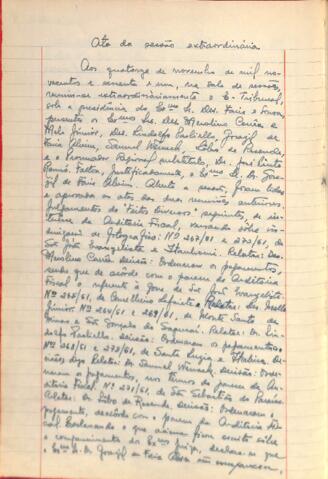 Ata da sessão extraordinária
Aos quatorze de novembro de mil no-
vecentos e sessenta e um, na sala de sessões,
reuniu-se extraordinàriamente o E. Tribunal,
sob a presidência do Exmo Sr. Des. Faria e Sousa,
presentes os Exmos Srs. Des. Merolino Corrêa e
Melo Júnior, Drs. Lindolfo Paoliello,
Faria Alvim, Samuel Werneck, de Resende,
e o Procurador Regional substituto, Dr. José
Faltou, justificadamente, o Exmo Sr. Dr.
de Faria Alvim. Aberta a sessão, foram lidas
e aprovadas as atas das duas reuniões anteriores
Julgamentos de "Feitos Diversos" seguintes, de
da Auditoria Fiscal, versando sôbre
de fotografias: Nº 267/61 e 273/61, de
São João Evangelista e Itambacuri. Relator: Des.
Merolino Corrêa. Decisão: Ordenaram o pagamento,
sendo que de acôrdo com o parecer da Auditoria
Fiscal o referente à Zona de São João Evangelista.
Nº 265/61, de Conselheiro Lafaiete. Relator: Des. Mello
Júnior. Nº 264/61 e 269/61, de Monte Santo de
Minas e São Gonçalo do Sapucaí. Relator: Dr. Lin-
dolfo Paoliello. Decisão: Ordenaram os pagamentos.
Nº 268/61 e 272/61, de Santa Luzia e Itabira.
Relator: Dr. Samuel Werneck. Decisão: Orde-
naram o pagamento, nos termos do parecer da Au-
ditoria Fiscal. Nº 271/61, de São Sebastião do Paraíso.
Relator: Dr. de Resende. Decisão: Ordenaram o
pagamento, de acôrdo com o parecer da Auditoria Fis-
cal. que
o comparecimento do Exmo juiz, declara-se que
o Exmo Sr. Dr. de Faria Alvim não compareceu,